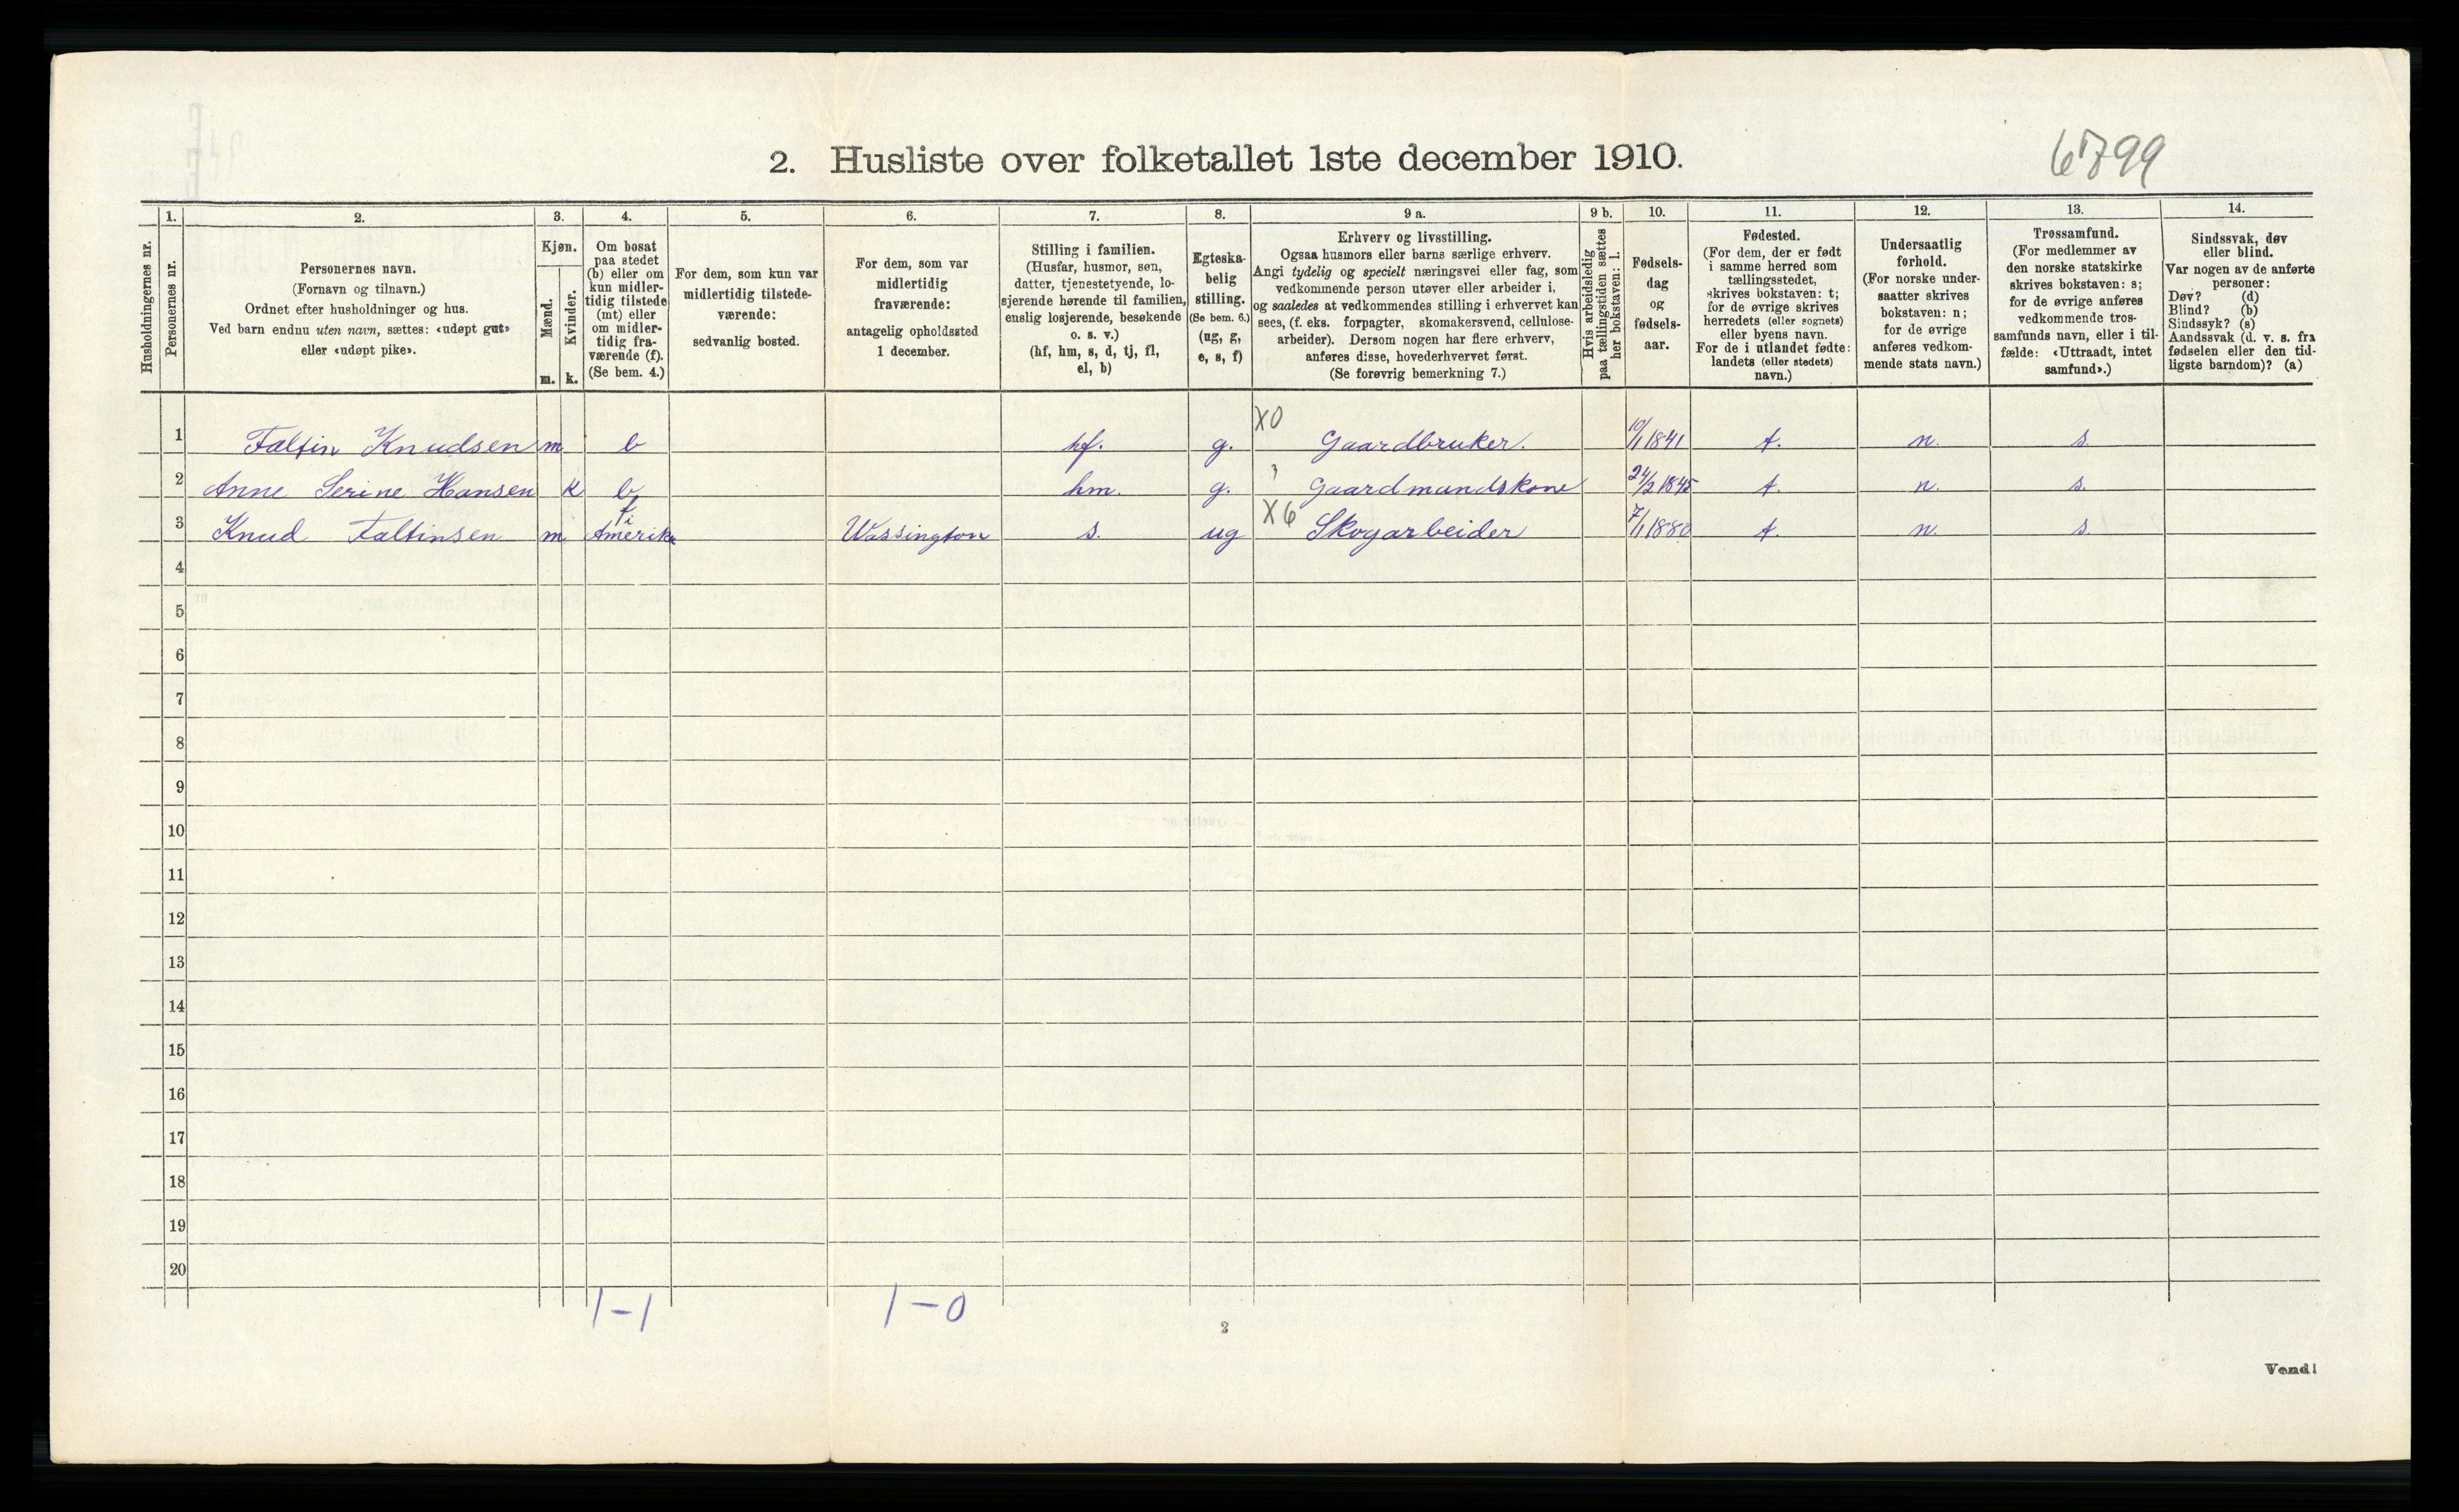 2. Husliste over folketallet 1ste december 1910.
6799
Husholdningernes nr.
1.
Personernes nr.
2.
Personernes navn.
(Fornavn og tilnavn.)
Ordnet efter husholdninger og hus.
Ved barn endnu uten navn, sættes: «udøpt gut»
eller «udøpt pike».
3.
Kjøn.
Mænd.
m.
Kvinder.
k.
4.
Om bosat
paa stedet
(b) eller om
kun midler-
tidig tilstede
(mt) eller
om midler-
tidig fra-
værende (f).
(Se bem. 4.)
5.
For dem, som kun var
midlertidig tilstede-
værende:
sedvanlig bosted.
6.
For dem, som var
midlertidig
fraværende:
antagelig opholdssted
1 december.
7.
Stilling i familien.
(Husfar, husmor, søn,
datter, tjenestetyende, lo-
sjerende hørende til familien,
enslig losjerende, besøkende
o. s. v.)
(hf, hm, s, d, tj, fl,
el, b)
8.
Egteska-
belig
stilling.
(Se bem. 6.)
(ug, g,
e, s, f)
9 a.
Erhverv og livsstilling.
Ogsaa husmors eller barns særlige erhverv.
Angi tydelig og specielt næringsvei eller fag, som
vedkommende person utøver eller arbeider i,
og saaledes at vedkommendes stilling i erhvervet kan
sees, (f. eks. forpagter, skomakersvend, cellulose-
arbeider). Dersom nogen har flere erhverv,
anføres disse, hovederhvervet først.
(Se forøvrig bemerkning 7.)
9 b.
Hvis arbeidsledig
paa tællingstiden sættes
her bokstaven: l.
10.
Fødsels-
dag
og
fødsels-
aar.
11.
Fødested.
(For dem, der er født
i samme herred som
tællingsstedet,
skrives bokstaven: t;
for de øvrige skrives
herredets (eller sognets)
eller byens navn.
For de i utlandet fødte:
landets (eller stedets)
navn.)
12.
Undersaatlig
forhold.
(For norske under-
saatter skrives
bokstaven: n;
for de øvrige
anføres vedkom-
mende stats navn.)
13.
Trossamfund.
(For medlemmer av
den norske statskirke
skrives bokstaven: s;
for de øvrige anføres
vedkommende tros-
samfunds navn, eller i til-
fælde: «Uttraadt, intet
samfund».)
14.
Sindssvak, døv
eller blind.
Var nogen av de anførte
personer:
Døv? (d)
Blind? (b)
Sindssyk? (s)
Aandssvak (d. v. s. fra
fødselen eller den tid-
ligste barndom)? (a)
1 Faltin Knudsen m b hf. g. X0 Gaardbruker. 10/1 1841 t. n. s.
2 Anne Serine Hansen k b hm. g. Gaardmandskone 24/2 1845 t. n. s.
3 Knud Faltinsen m f i Amerika Wassington s. ug X6 Skogarbeider 7/1 1880 t. n. s.
4
5
6
7
8
9
10
11
12
13
14
15
16
17
18
19
20
1-1 1-0
2
Vend!